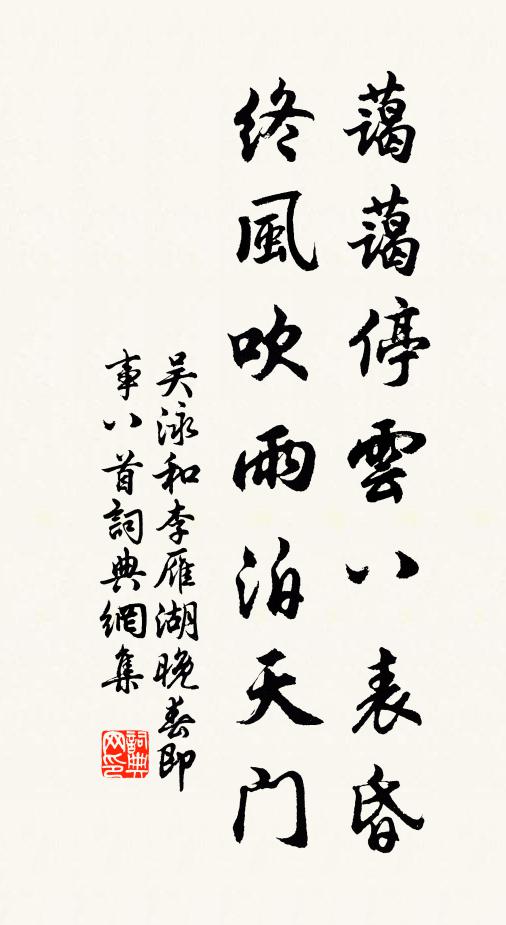 藹藹停雲八表昏
終風吹雨泊天門
吴泳和李雁湖晚春即
事八首詞典網集
詞典网印